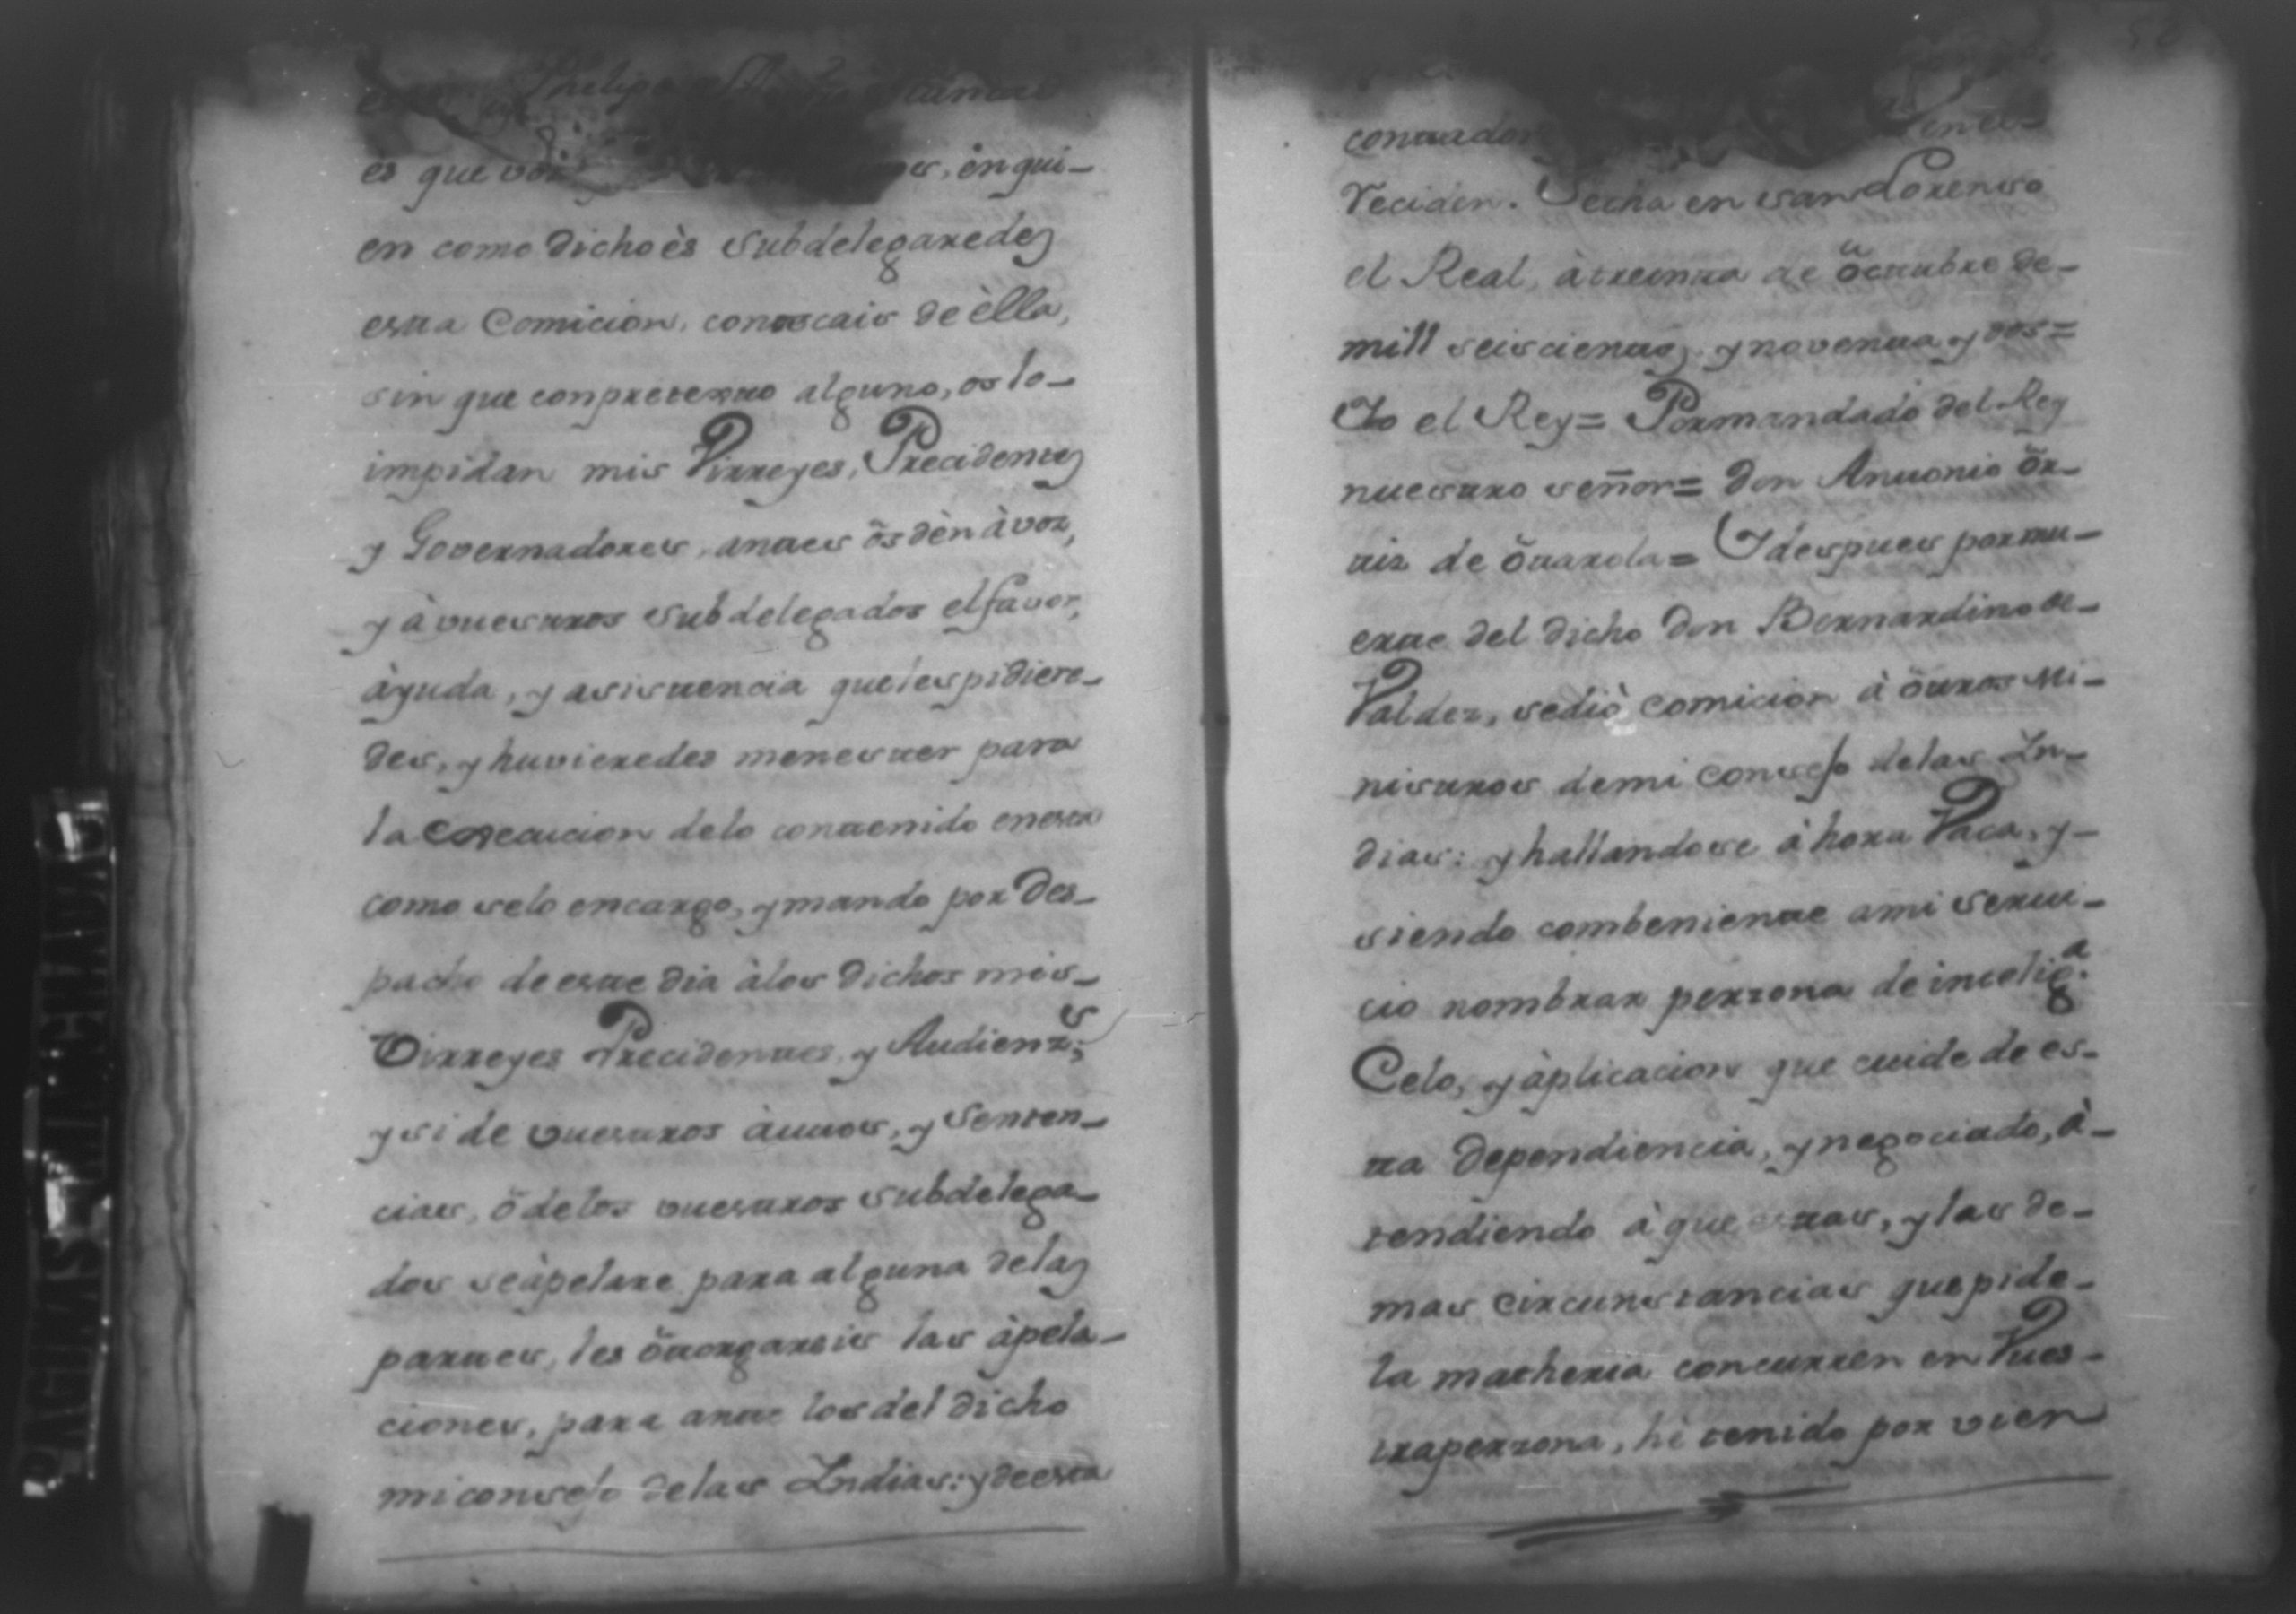 es que vos en qui-
en como dicho ès subdelegaredes
esta Comicion, conoscais de èlla,
sin que con pretexto alguno, os lo-
impidan mis Virreyes, Precidentes
y Governadores, antes õs dèn à vos,
y à vuestros subdelegados el favor,
àyuda, y asistencia que les pidiere-
des, y huvieredes menester para
la execucion de lo contenido en esta
como se lo encargo, y mando por Des-
pacho de este dia à los dichos mis-
Virreyes Precidentes, y Audienz.s
y si de vuestros àuttos, y Senten-
cias, õ de los vuestros subdelega-
dos se àpelare para alguna de las
partes, les õtorgareis las àpela-
ciones, para ante los del dicho
mi consejo de las Indias: y de esta
contador en el-
reciden. Fecha en san Lorenso
el Real, à treinta de õctubre de-
mill seiscientos, y noventa y dos=
Yo el Rey= Por mandado del Rey
nuestro señor= Don Antonio õr-
tiz de õtarola= Y despues por mu-
erte del dicho Don Bernardino de-
Valdez, se diò comicion à õtros Mi-
nistros de mi consejo de las In-
dias: y hallandose àhora Vaca, y-
siendo combeniente a mi servi-
cio nombrar perzona de intelig.a
Celo, y àplicacion que cuide de es-
ta Dependiencia, y negociado, à-
tendiendo à que estas, y las de-
mas circunstancias que pide-
la matheria concurren en Vues-
tra perzona, hè tenido por vien